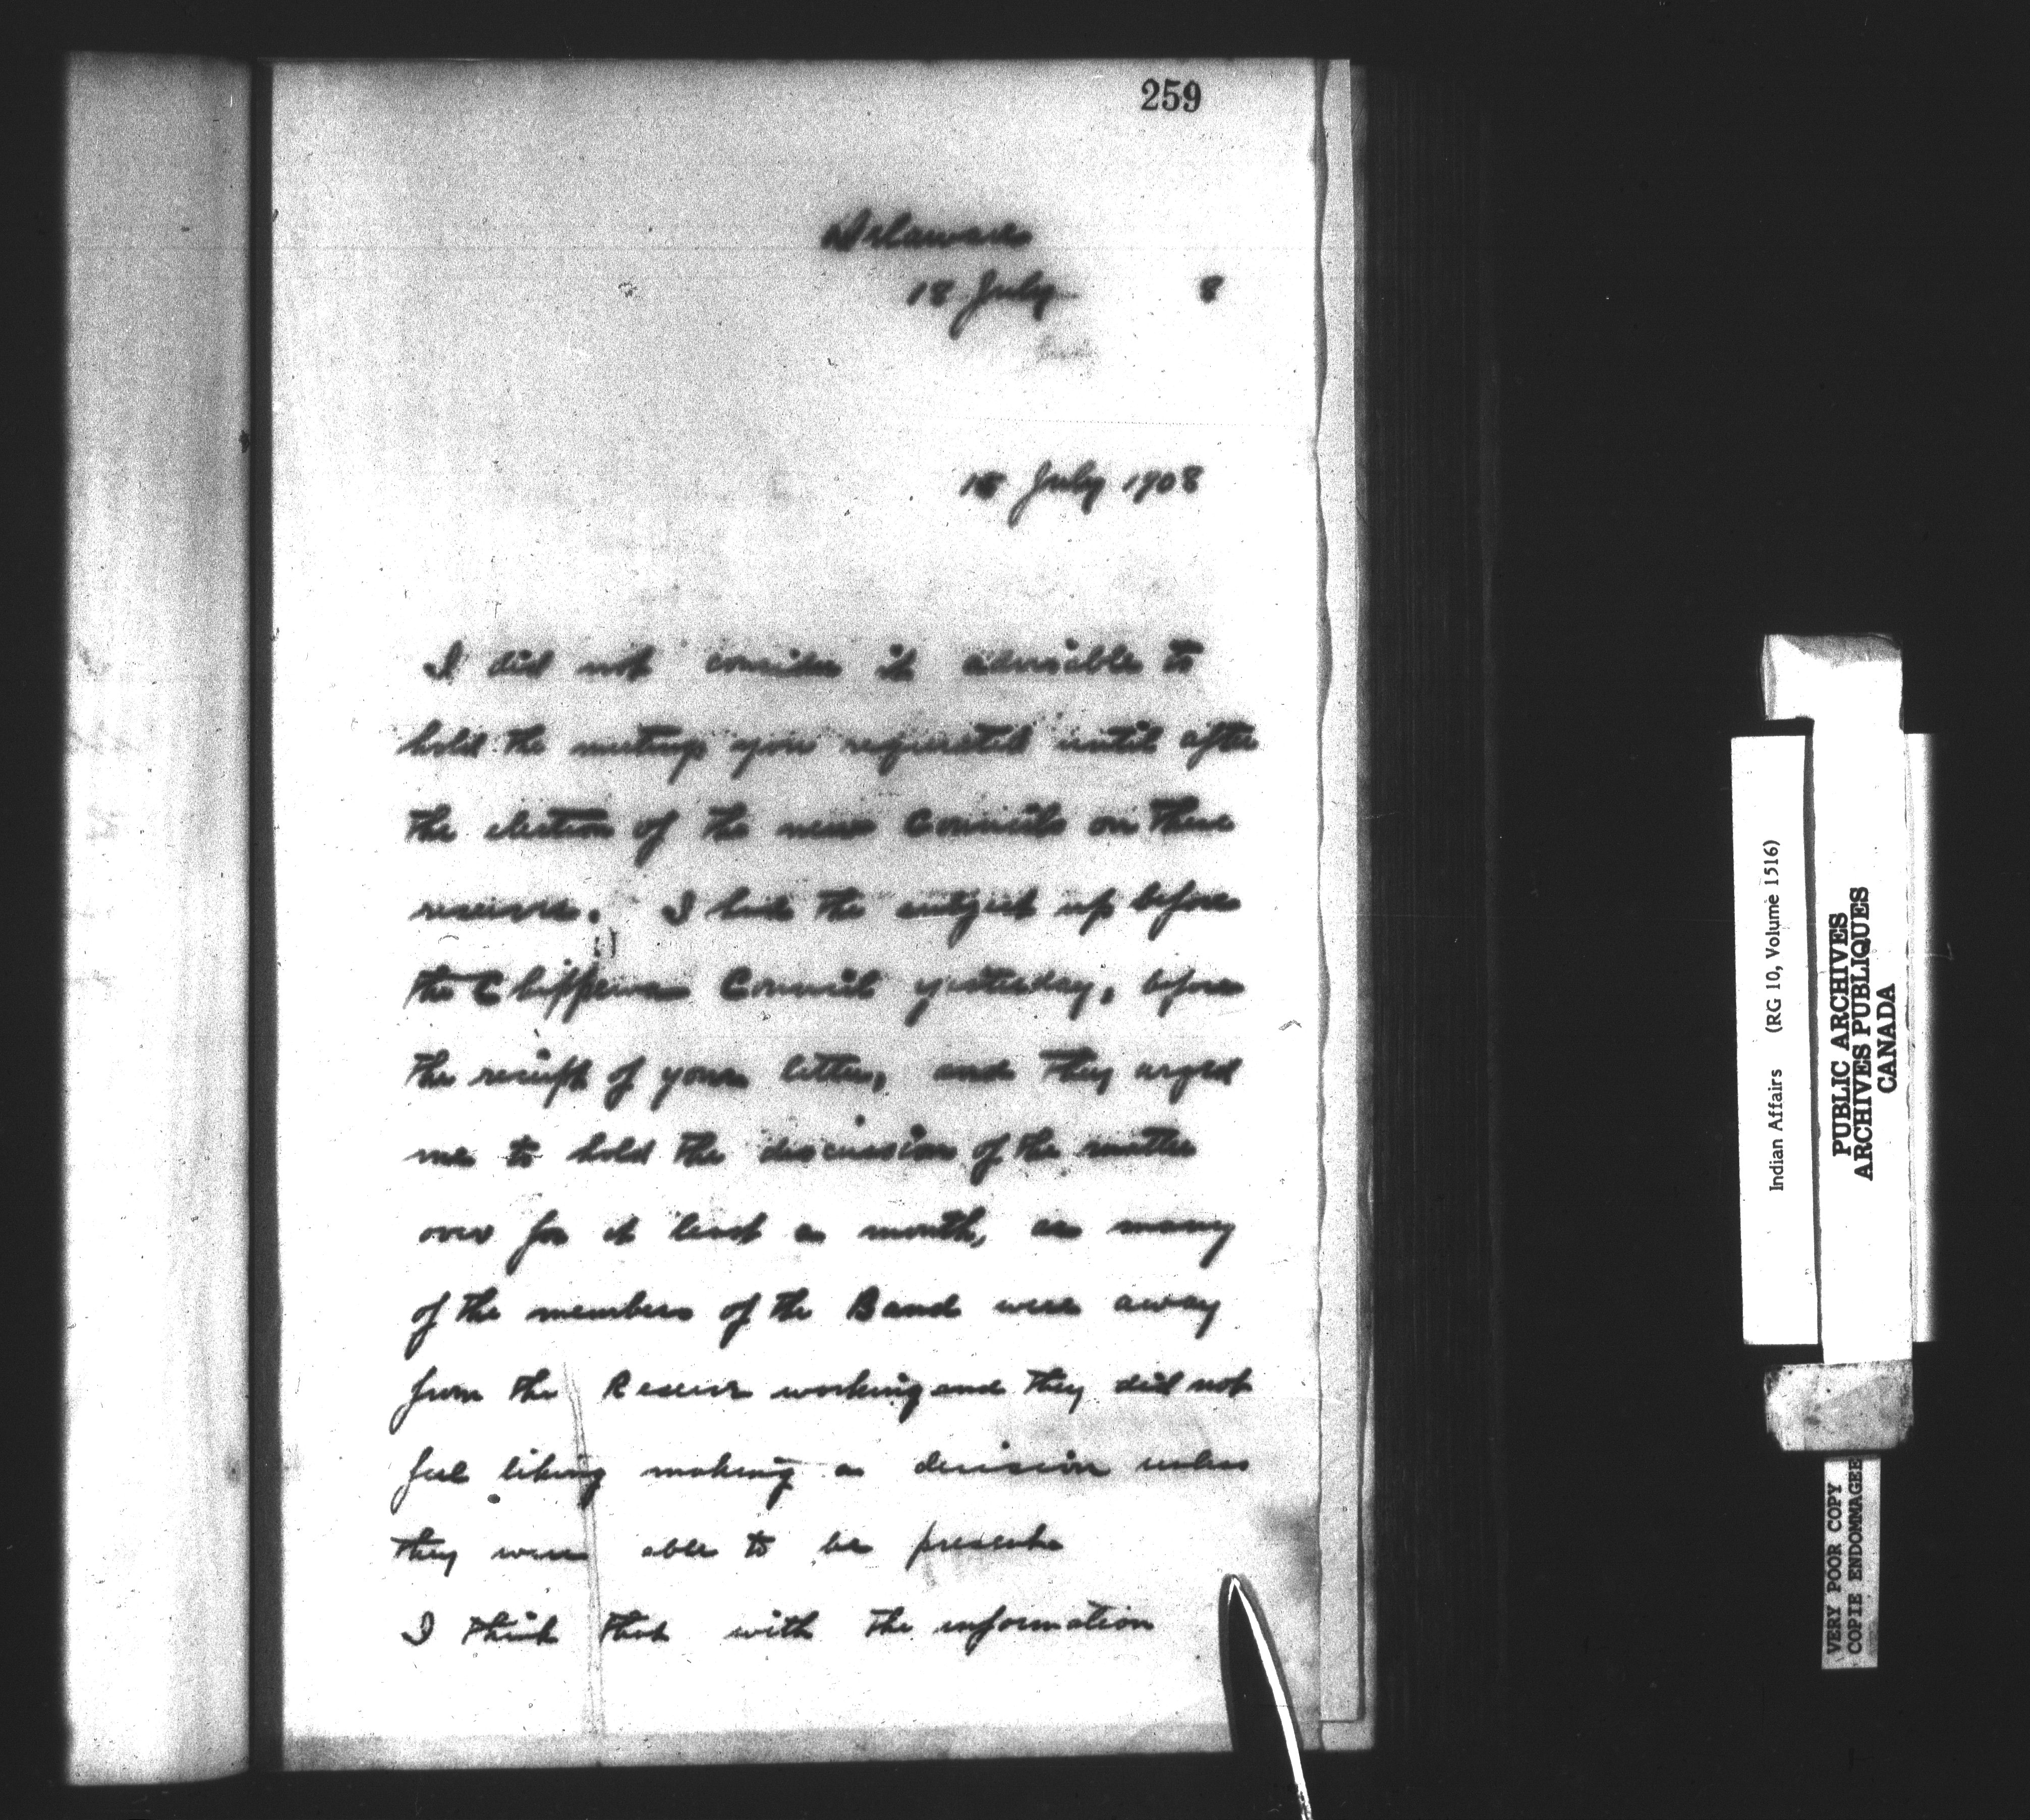 259
Delaware
18 July 8
18 July 1908
I did not consider it advisable to
hold the meetings you requested until after
the election of the new Councils on these
reserves. I had the subject up before
the Chippewa Council yesterday, before
the receipt of your letter, and they urged
me to hold the discussion of the matter
over for at least a month, as many
of the members of the Band were away
from the Reserve working and they did not
feel liking making a decision unless
they were able to be present
I think that with the information
Indian Affairs (RG 10, Volume 1516)
PUBLIC ARCHIVES
ARCHIVES PUBLIQUES
CANADA
VERY POOR COPY
COPIE ENDOMMAGEE